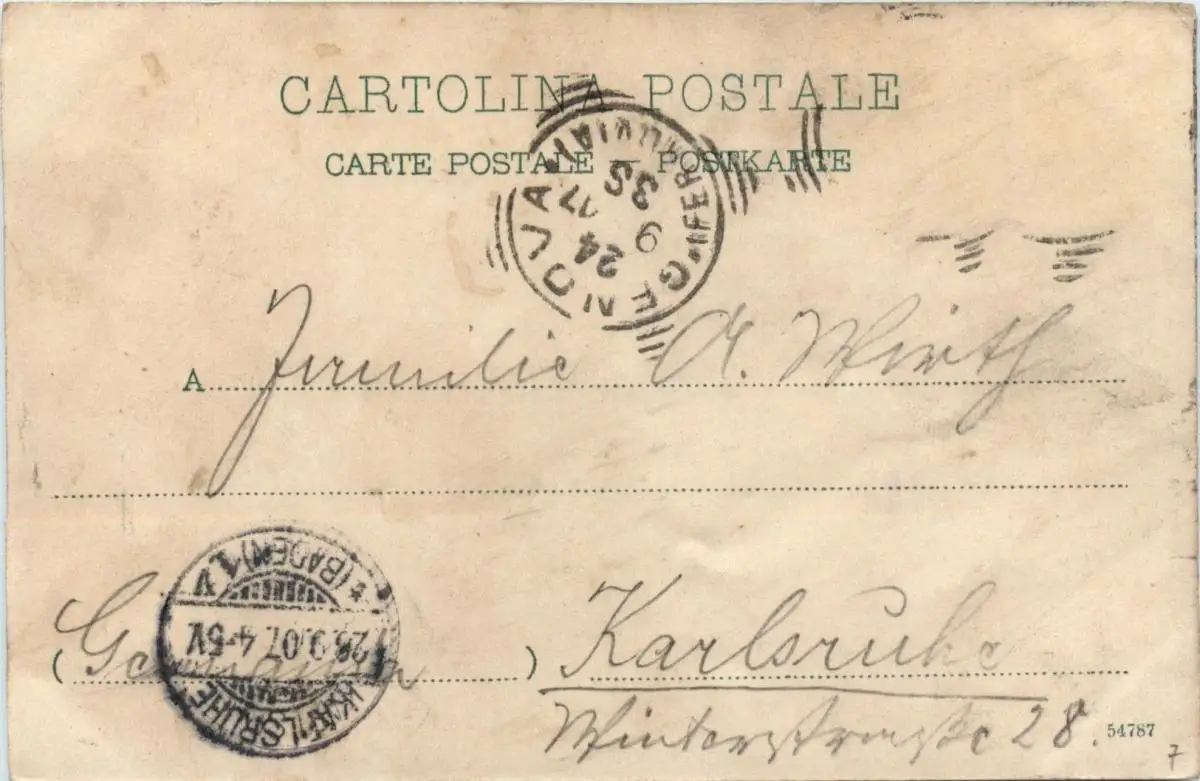 CARTOLINA POSTALE
CARTE POSTALE — POSTKARTE
GENOVA (FERROVIA)
24
9
07
3S
A Familie A. Wirth
KARLSRUHE (BADEN) 1
26.9.07. 4-5V.
(Germania) Karlsruhe
Winterstraße 28.
54787
7